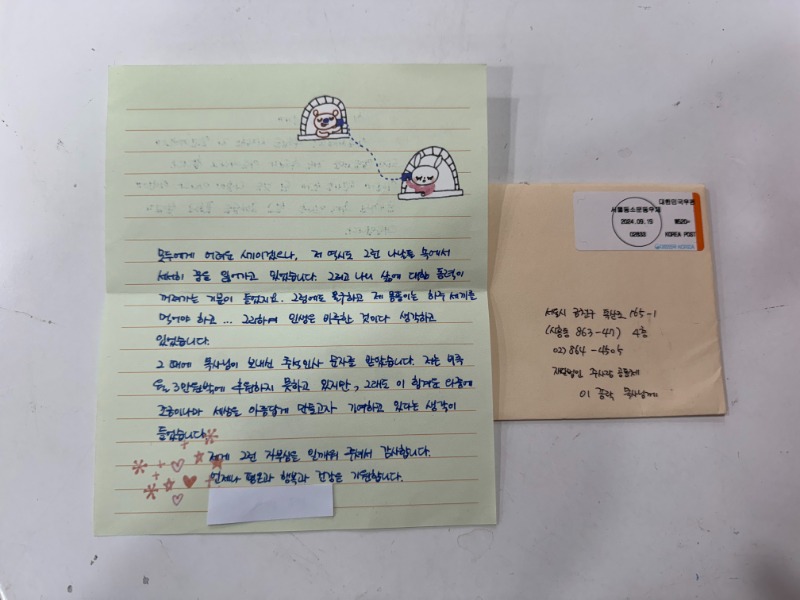 모두에게 어려운 시기이겠으나, 저 역시도 그런 나날들 속에서
서서히 꿈을 잃어가고 있었습니다. 그러고 나니 삶에 대한 동력이
꺼져가는 기분이 들었지요. 그럼에도 불구하고 제 몸뚱이는 하루 세끼를
먹어야 하고 ... 그리하여 인생은 비루한 것이다 생각하고
있었습니다.
그 때에 목사님이 보내신 추석인사 문자를 받았습니다. 저는 비록
월 3만원밖에 후원하지 못하고 있지만, 그래도 이 힘겨운 와중에
조금이나마 세상을 아름답게 만들고자 기여하고 있다는 생각이
들었습니다.
제게 그런 자부심을 일깨워 주셔서 감사합니다.
언제나 평온과 행복과 건강을 기원합니다.
대한민국우편
서울동소문동우체
2024.09.19
02833
₩520
KOREA POST
서울시 광진구 165-1
863-47) 4층
02) 864-4505
재단법인 공동체
이 목사님께